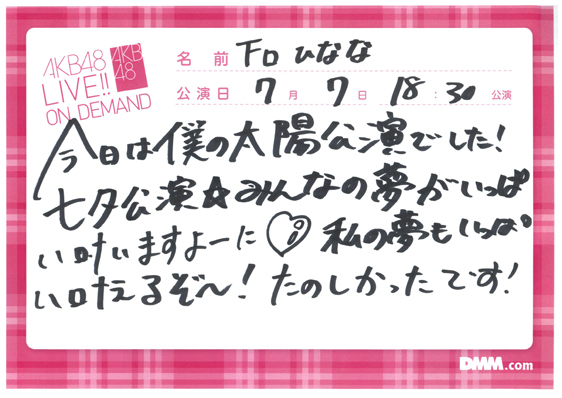 AKB48
LIVE!!
ON DEMAND
AKB
48
名 前 下口ひなな
公演日 7月 7日 18:30 公演
今日は僕の太陽公演でした!
七夕公演☆みんなの夢がいっぱ
い叶いますよーに♡ 私の夢もいっぱ
い叶えるぞ〜! たのしかったです!
DMM.com